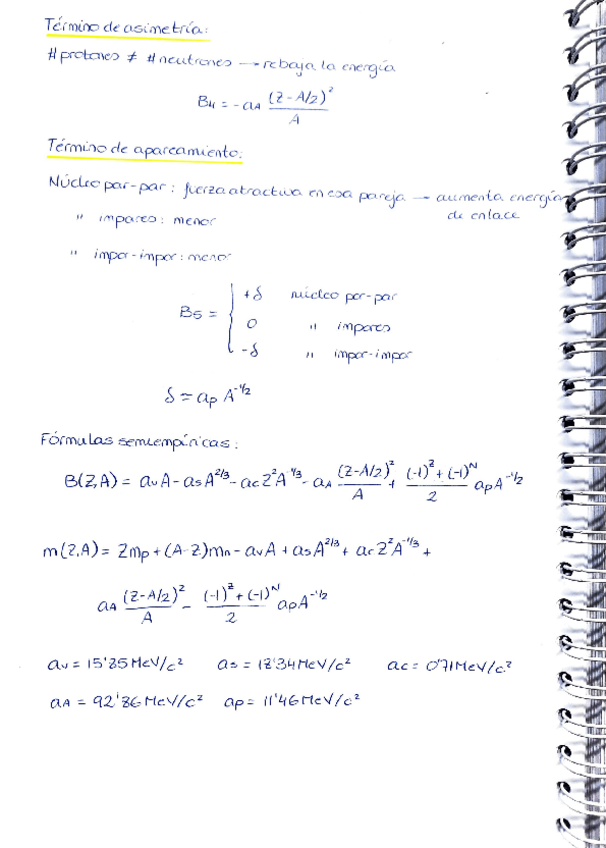 Término de asimetría:
# protones ≠ # neutrones → rebaja la energía
B₄ = - a_A (Z - A/2)² / A
Término de apareamiento:
Núcleo par-par: fuerza atractiva en esa pareja → aumenta energía
de enlace
" impares: menor
" impar-impar: menor
B5 = { +δ núcleo par-par
0 " impares
-δ " impar-impar
δ = a_p A^(-1/2)
Fórmulas semiempíricas:
B(Z,A) = a_v A - a_s A^(2/3) - a_c Z² A^(-1/3) - a_A (Z-A/2)² / A + ((-1)^Z + (-1)^N) / 2 a_p A^(-1/2)
m(Z,A) = Zm_p + (A-Z)m_n - a_v A + a_s A^(2/3) + a_c Z² A^(-1/3) +
a_A (Z-A/2)² / A - ((-1)^Z + (-1)^N) / 2 a_p A^(-1/2)
a_v = 15'85 MeV/c² a_s = 18'34 MeV/c² a_c = 0'71 MeV/c²
a_A = 92'86 MeV/c² a_p = 11'46 MeV/c²